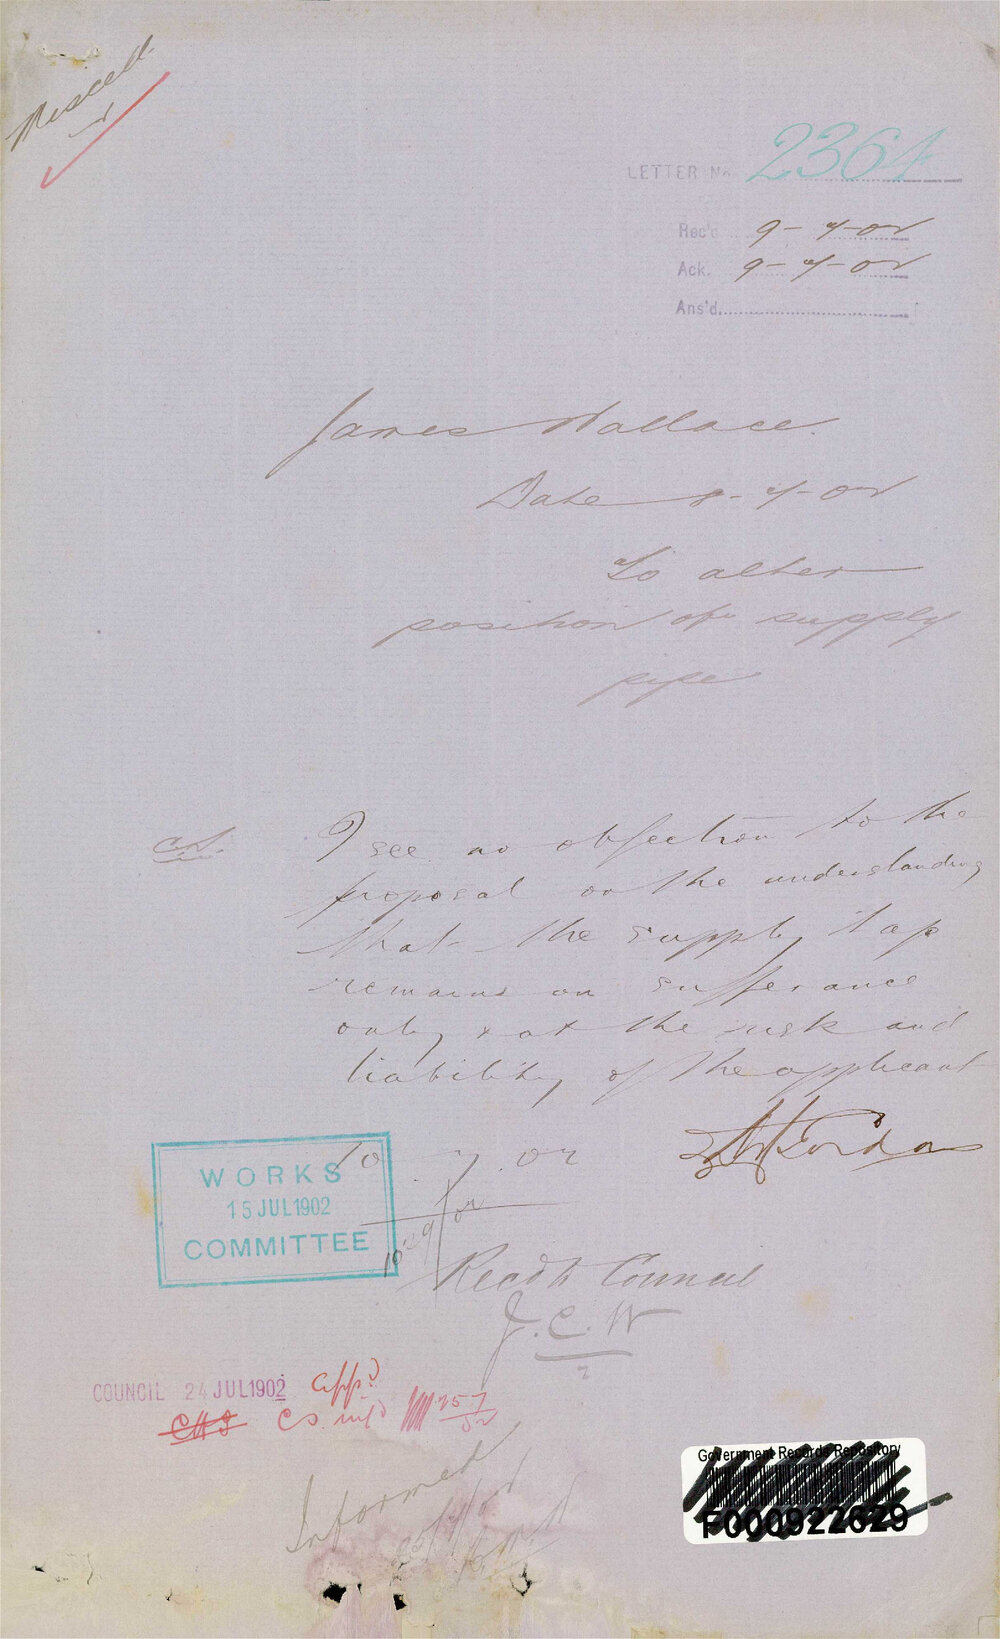 Miscell
LETTER No. 2364
Rec'd 9-7-02
Ack. 9-7-02
Ans'd
James Wallace.
Date 8-7-02
To alter
position of supply
pipe
I see no objection to the
proposal on the understanding
that the supply tap
remains on sufferance
only & at the risk and
liability of the applicant
10 7 02
WORKS
15 JUL 1902
COMMITTEE
Recd to Council
J.C.W
COUNCIL 24 JUL 1902 App'd
Informed
Government Records Repository
F000922629